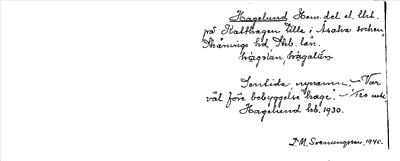 Hagelund, Hem.del el. lht.
på Katthagen Lille i Åsaka socken,
Skånings hd, Skb. län.
Sentida, nynamn. – Var
väl före bebyggelse hage. –
Hagelund lht. 1930.
D.M. Svenungsson, 1945.